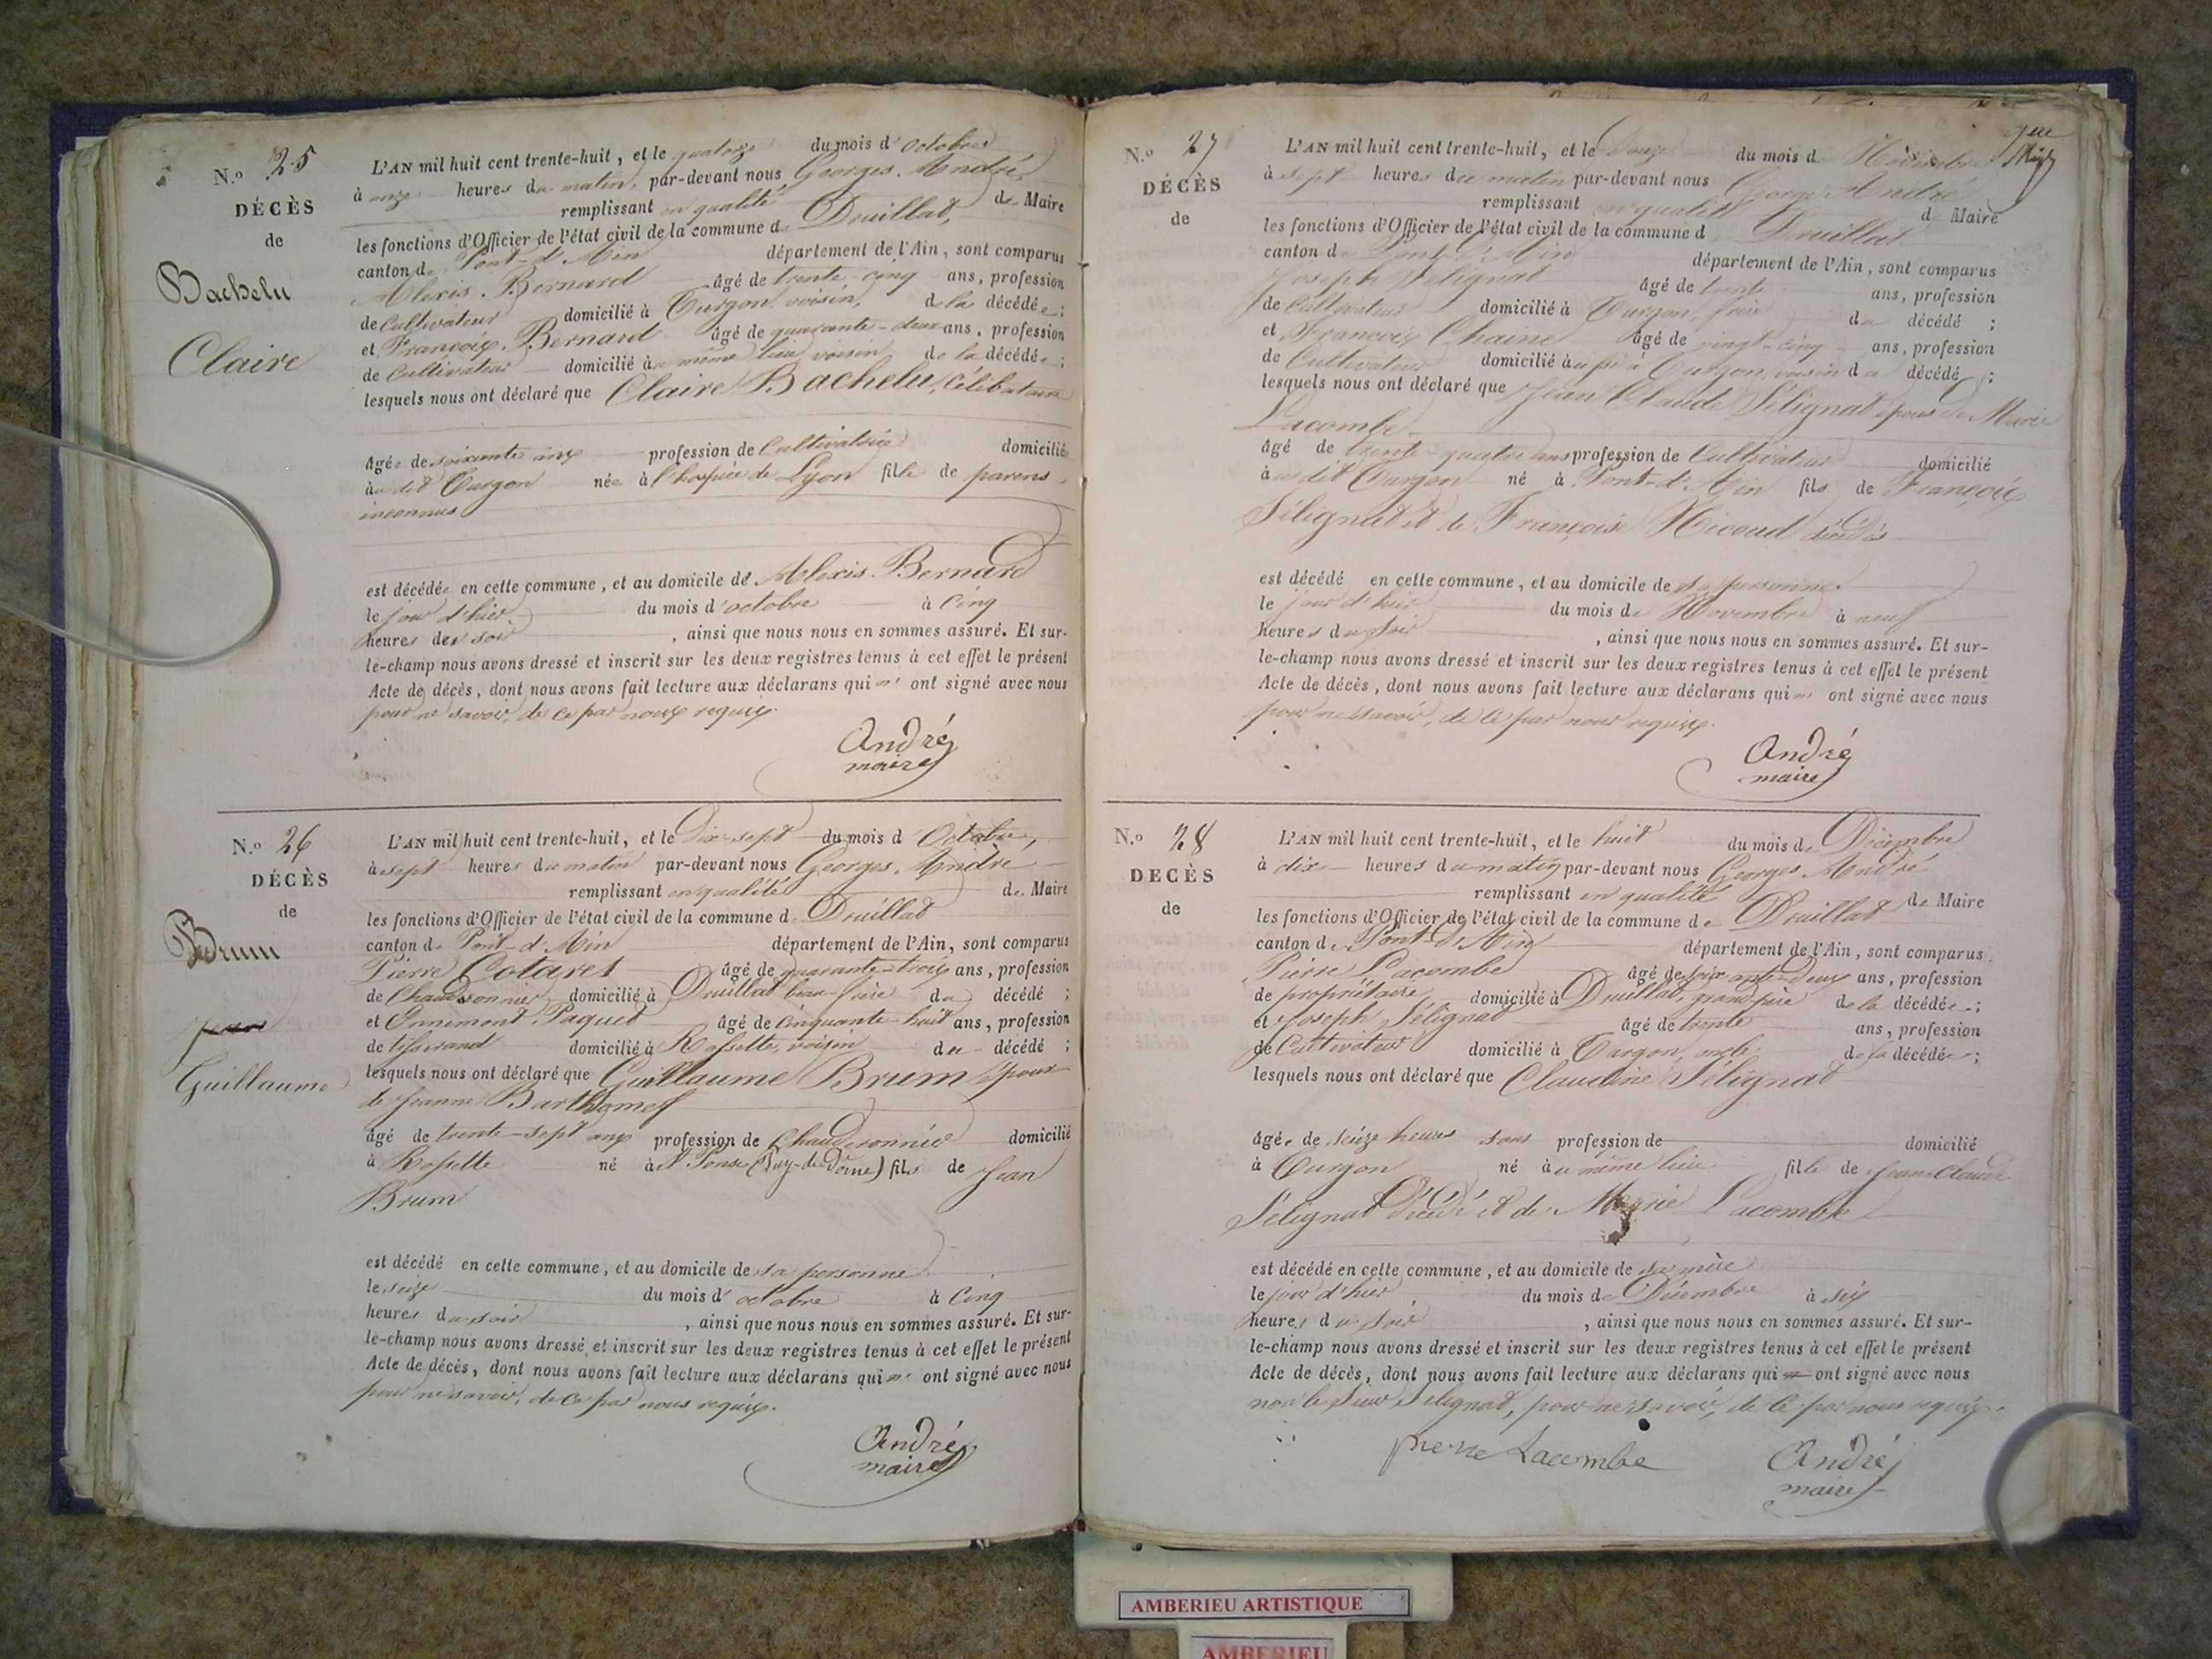 N.º 25
DÉCÈS
de
Bachelu
Claire
L'AN mil huit cent trente-huit, et le quatorze du mois d'octobre
à onze heures du matin, par-devant nous Georges André,
remplissant en qualité de Maire
les fonctions d'Officier de l'état civil de la commune de Druillat,
canton de Pont-d'Ain département de l'Ain, sont comparus
Alexis Bernard âgé de trente-cinq ans, profession
de Cultivateur domicilié à Turgon, voisin, de la décédée ;
et François Bernard âgé de quarante-deux ans, profession
de Cultivateur domicilié au même lieu voisin de la décédée ;
lesquels nous ont déclaré que Claire Bachelu, Célibataire
âgée de soixante ans profession de Cultivatrice domiciliée
au dit Turgon née à l'hospice de Lyon fille de parens
inconnus
est décédée en cette commune, et au domicile de Alexis Bernard
le jour d'hier du mois d'octobre à Cinq
heures du soir, ainsi que nous nous en sommes assuré. Et sur-
le-champ nous avons dressé et inscrit sur les deux registres tenus à cet effet le présent
Acte de décès, dont nous avons fait lecture aux déclarans qui n' ont signé avec nous
pour ne savoir, de ce par nous requis.
André
maire
N.º 26
DÉCÈS
de
Brum
Guillaume
L'AN mil huit cent trente-huit, et le Dix-sept du mois d'Octobre,
à sept heures du matin par-devant nous Georges André
remplissant en qualité de Maire
les fonctions d'Officier de l'état civil de la commune de Druillat
canton de Pont-d'Ain département de l'Ain, sont comparus
Pierre Cotaret âgé de quarante-trois ans, profession
de Chaudronnier domicilié à Druillat beau-frère du décédé ;
et Onnemont Paquet âgé de Cinquante-huit ans, profession
de tisserand domicilié à Rossette, voisin du décédé ;
lesquels nous ont déclaré que Guillaume Brum Epoux
de Jeanne
âgé de trente-sept ans profession de Chaudronnier domicilié
à Rossette né à (Puy-de-Dôme) fils de Jean
Brum
est décédé en cette commune, et au domicile de sa personne
le seize du mois d'octobre à Cinq
heures du soir, ainsi que nous nous en sommes assuré. Et sur-
le-champ nous avons dressé et inscrit sur les deux registres tenus à cet effet le présent
Acte de décès, dont nous avons fait lecture aux déclarans qui n' ont signé avec nous
pour ne savoir, de ce par nous requis.
André
maire
N.º 27
DÉCÈS
de
L'AN mil huit cent trente-huit, et le Douze du mois de Novembre
à sept heures du matin par-devant nous George André
remplissant en qualité de Maire
les fonctions d'Officier de l'état civil de la commune d Druillat
canton de Pont-d'Ain département de l'Ain, sont comparus
Joseph Sélignat âgé de trente ans, profession
de Cultivateur domicilié à Turgon, frère du décédé ;
et François Chaine âgé de vingt-cinq ans, profession
de Cultivateur domicilié aussi à Turgon, voisin du décédé ;
lesquels nous ont déclaré que Jean Claude Sélignat époux de Marie
Lacombe
âgé de trente-quatre ans profession de Cultivateur domicilié
au dit Turgon né à Pont-d'Ain fils de François
Sélignat et de Françoise Nicoud décédés
est décédé en cette commune, et au domicile de sa personne
le jour d'hier du mois de Novembre à neuf
heures du soir, ainsi que nous nous en sommes assuré. Et sur-
le-champ nous avons dressé et inscrit sur les deux registres tenus à cet effet le présent
Acte de décès, dont nous avons fait lecture aux déclarans qui n' ont signé avec nous
pour ne savoir, de ce par nous requis.
André
maire
N.º 28
DECÈS
de
L'AN mil huit cent trente-huit, et le huit du mois de Décembre
à dix heures du matin par-devant nous Georges André
remplissant en qualité de Maire
les fonctions d'Officier de l'état civil de la commune de Druillat
canton de Pont-d'Ain département de l'Ain, sont comparus
Pierre Lacombe âgé de soixante-deux ans, profession
de propriétaire domicilié à Druillat, grand-père de la décédée ;
et Joseph Sélignat âgé de trente ans, profession
de Cultivateur domicilié à Turgon, oncle de la décédée ;
lesquels nous ont déclaré que Claudine Sélignat
âgée de seize heures sans profession de domicilié
à Turgon né au même lieu fille de Jean Claude
Sélignat Décédé et de Marie Lacombe
est décédé en cette commune, et au domicile de sa mère
le jour d'hier du mois de Décembre à six
heures du soir, ainsi que nous nous en sommes assuré. Et sur-
le-champ nous avons dressé et inscrit sur les deux registres tenus à cet effet le présent
Acte de décès, dont nous avons fait lecture aux déclarans qui ont signé avec nous
non le Sieur Sélignat, pour ne savoir, de ce par nous requis.
pierre Lacombe
André
maire
AMBERIEU ARTISTIQUE
AMBERIEU